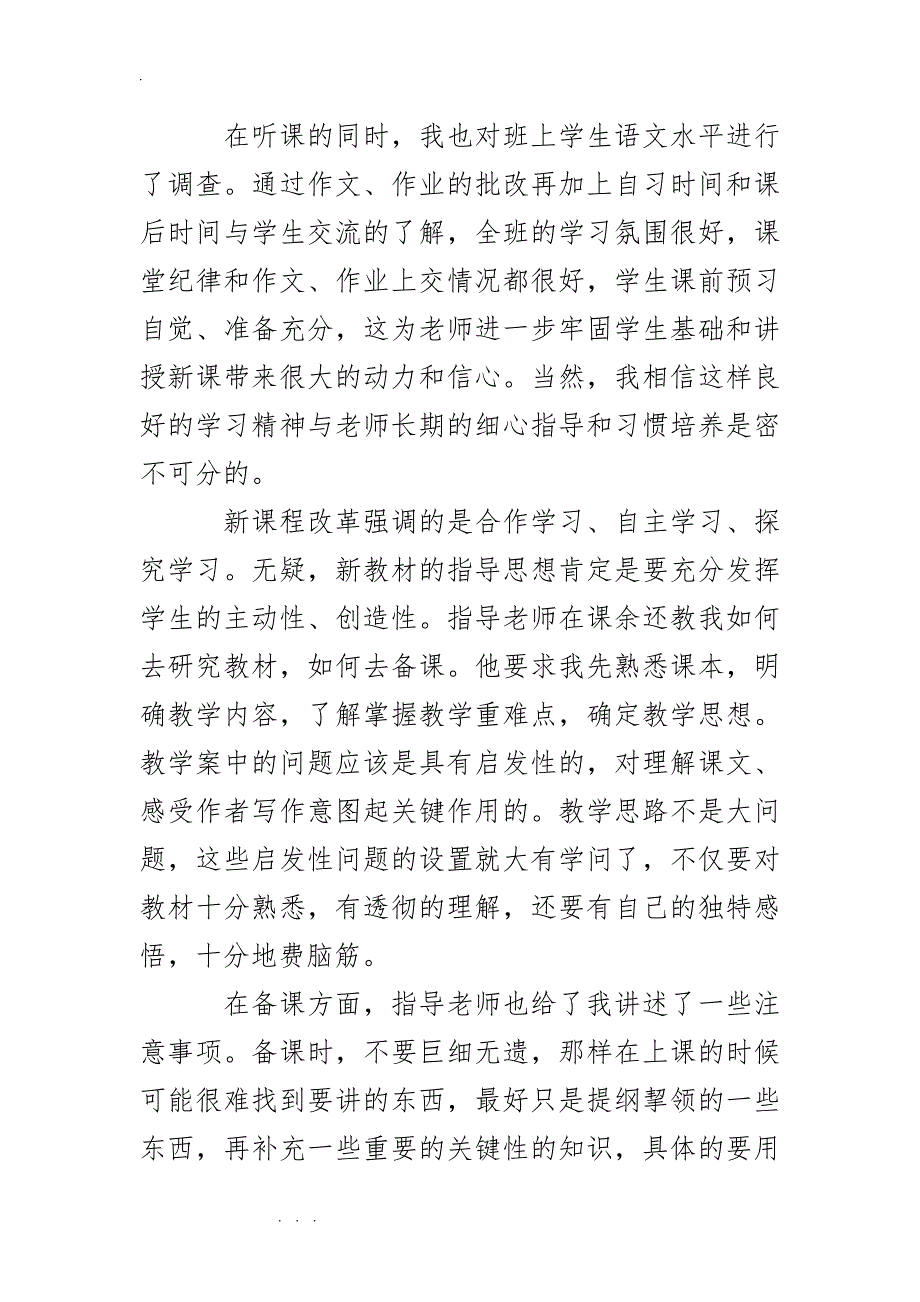 .
在听课的同时，我也对班上学生语文水平进行
了调查。通过作文、作业的批改再加上自习时间和课
后时间与学生交流的了解，全班的学习氛围很好，课
堂纪律和作文、作业上交情况都很好，学生课前预习
自觉、准备充分，这为老师进一步牢固学生基础和讲
授新课带来很大的动力和信心。当然，我相信这样良
好的学习精神与老师长期的细心指导和习惯培养是密
不可分的。
新课程改革强调的是合作学习、自主学习、探
究学习。无疑，新教材的指导思想肯定是要充分发挥
学生的主动性、创造性。指导老师在课余还教我如何
去研究教材，如何去备课。他要求我先熟悉课本，明
确教学内容，了解掌握教学重难点，确定教学思想。
教学案中的问题应该是具有启发性的，对理解课文、
感受作者写作意图起关键作用的。教学思路不是大问
题，这些启发性问题的设置就大有学问了，不仅要对
教材十分熟悉，有透彻的理解，还要有自己的独特感
悟，十分地费脑筋。
在备课方面，指导老师也给了我讲述了一些注
意事项。备课时，不要巨细无遗，那样在上课的时候
可能很难找到要讲的东西，最好只是提纲挈领的一些
东西，再补充一些重要的关键性的知识，具体的要用
. . .